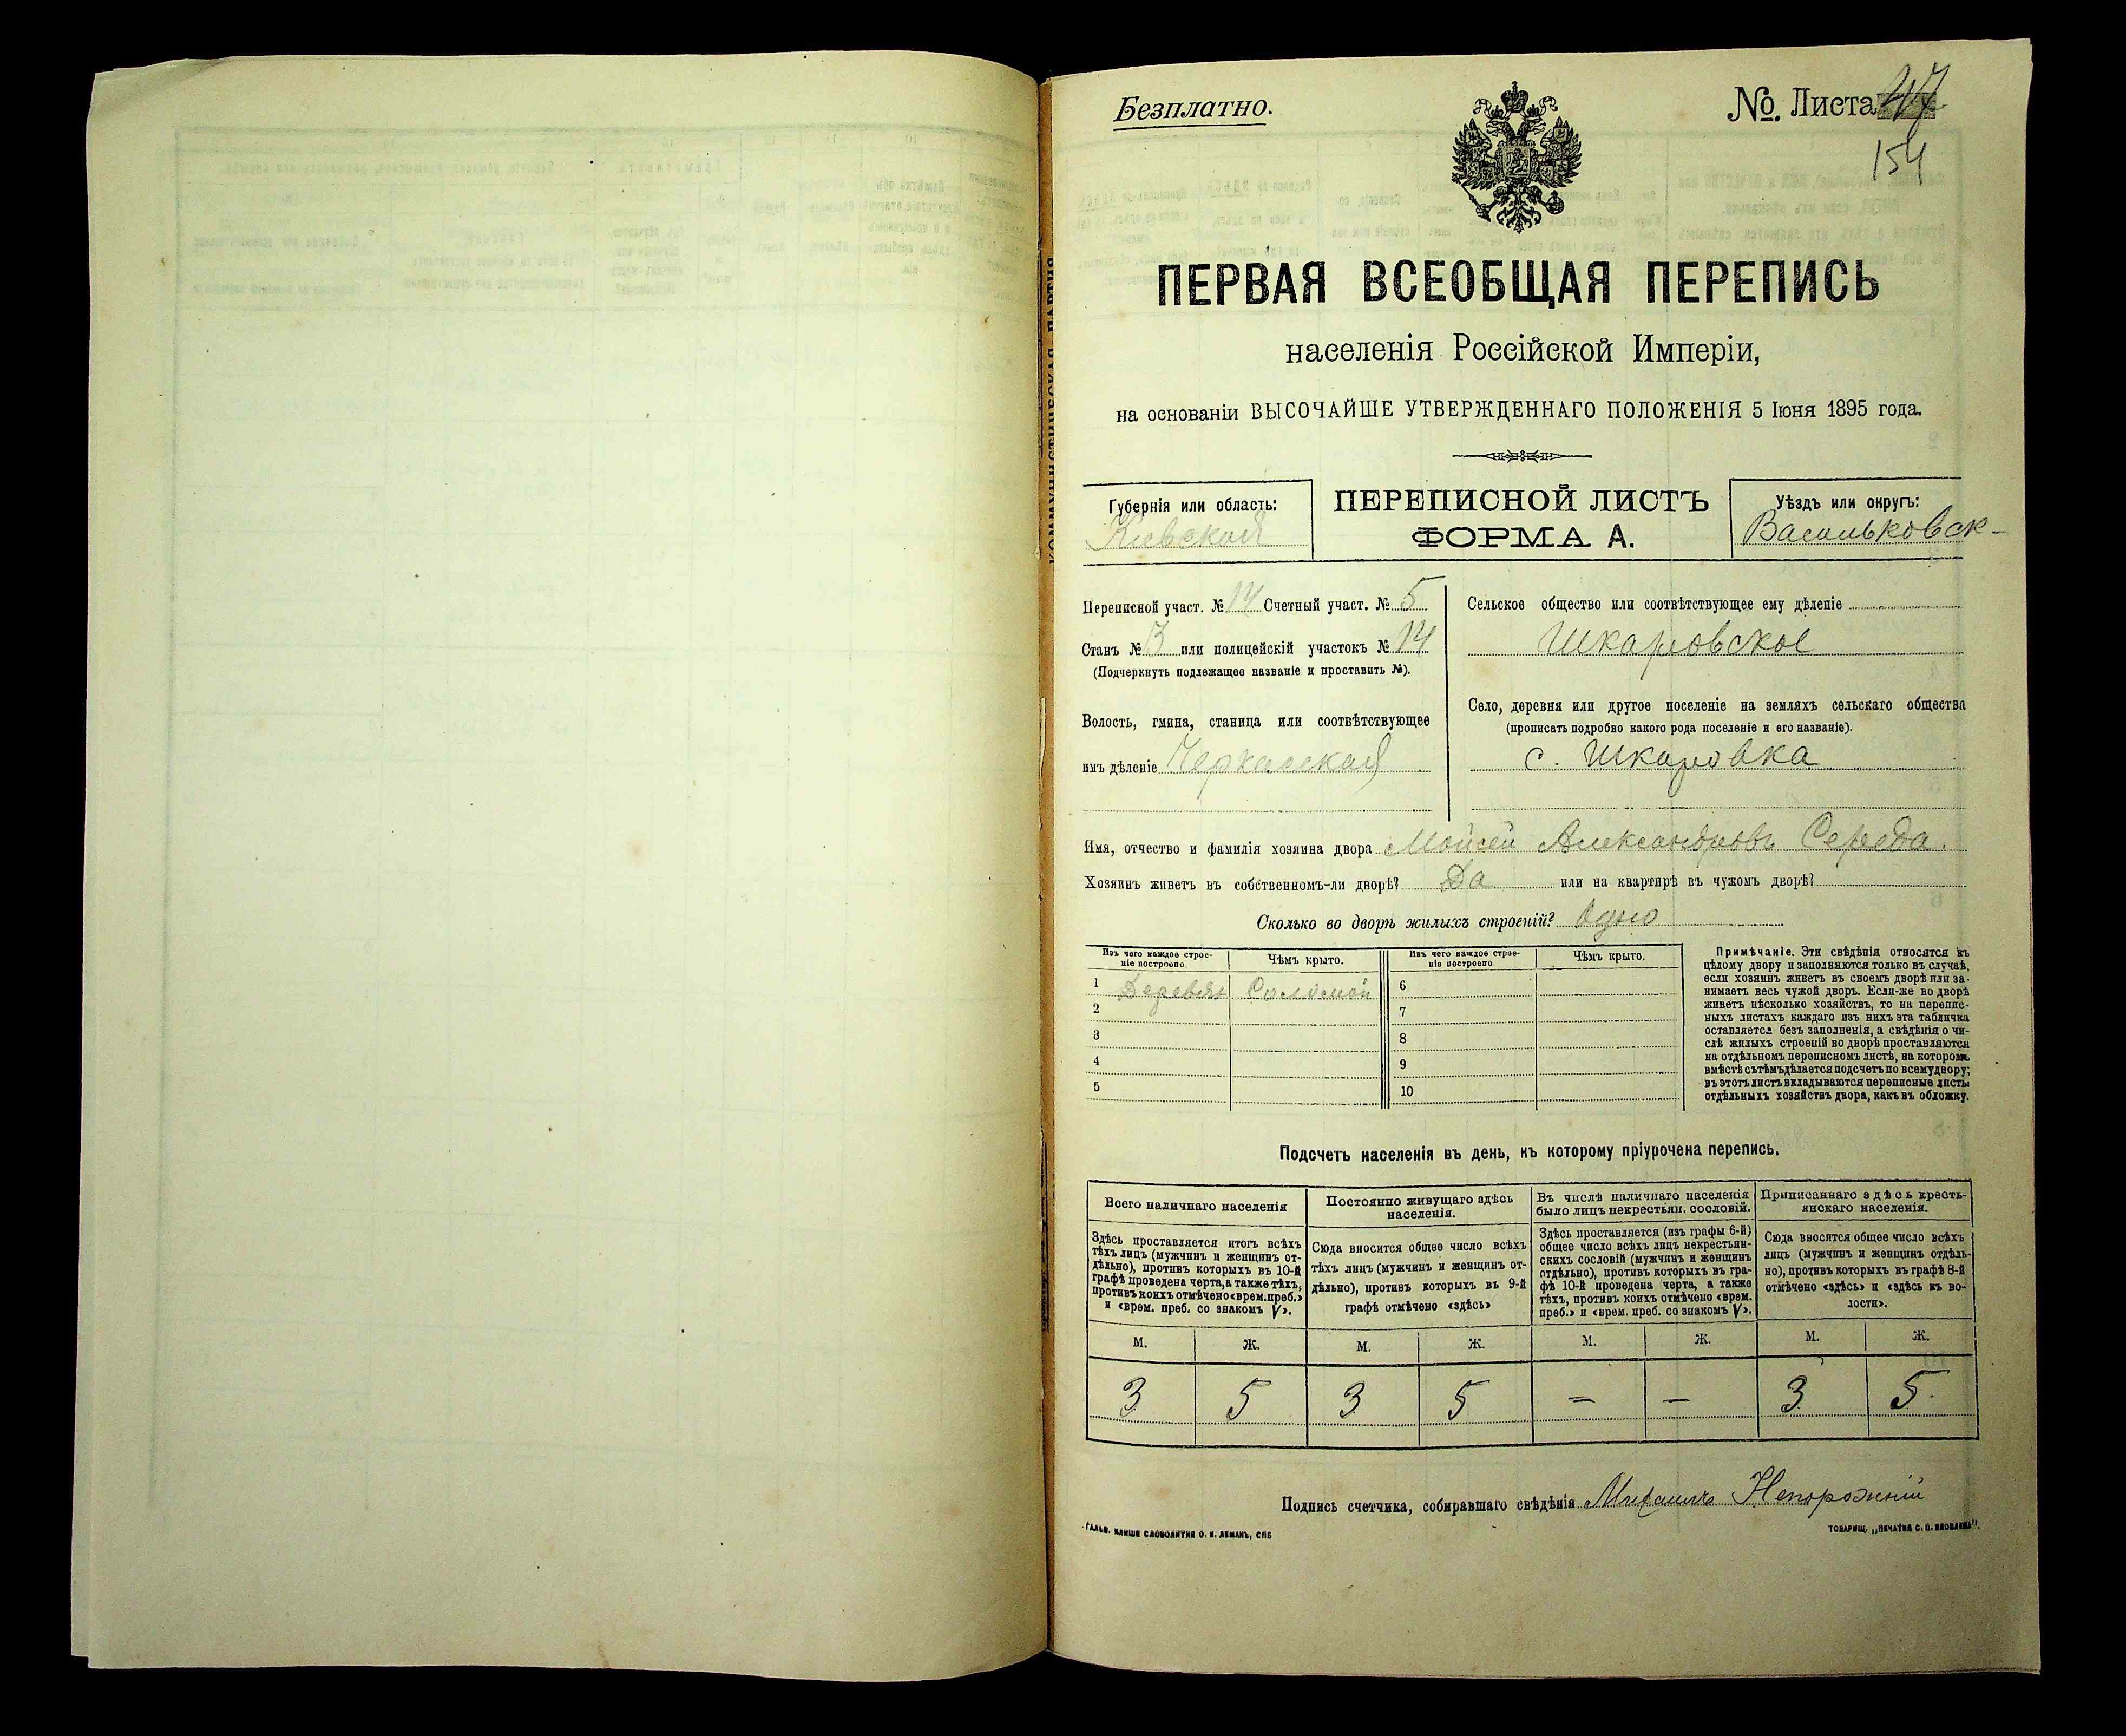 Безплатно.
№. Листа 47
154
ПЕРВАЯ ВСЕОБЩАЯ ПЕРЕПИСЬ
населенія Россійской Имперіи,
на основаніи ВЫСОЧАЙШЕ УТВЕРЖДЕННАГО ПОЛОЖЕНІЯ 5 Іюня 1895 года.
Губернія или область:
Киевская
ПЕРЕПИСНОЙ ЛИСТЪ
ФОРМА А.
Уѣздъ или округъ:
Васильковск-
Переписной участ. № 14 Счетный участ. № 5
Станъ № 3 или полицейскій участокъ № 14
(Подчеркнуть подлежащее названіе и проставить №).
Волость, гмина, станица или соотвѣтствующее
имъ дѣленіе Черкасская
Сельское общество или соотвѣтствующее ему дѣленіе
Шкаровское
Село, деревня или другое поселеніе на земляхъ сельскаго общества
(прописать подробно какого рода поселеніе и его названіе).
с. Шкаровка
Имя, отчество и фамилія хозяина двора Мойсей Александровъ Середа.
Хозяинъ живетъ въ собственномъ-ли дворѣ? Да или на квартирѣ въ чужомъ дворѣ?
Сколько во дворѣ жилыхъ строеній? Одно
Изъ чего каждое строе-
ніе построено.
Чѣмъ крыто.
Изъ чего каждое строе-
ніе построено
Чѣмъ крыто.
1 Деревян Соломой
2
3
4
5
6
7
8
9
10
Примѣчаніе. Эти свѣдѣнія относятся къ
цѣлому двору и заполняются только въ случаѣ,
если хозяинъ живетъ въ своемъ дворѣ или за-
нимаетъ весь чужой дворъ. Если-же во дворѣ
живетъ нѣсколько хозяйствъ, то на перепис-
ныхъ листахъ каждаго изъ нихъ эта табличка
оставляется безъ заполненія, а свѣдѣнія о чи-
слѣ жилыхъ строеній во дворѣ проставляются
на отдѣльномъ переписномъ листѣ, на которомъ
вмѣстѣ съ тѣмъ дѣлается подсчетъ по всему двору;
въ этотъ листъ вкладываются переписные листы
отдѣльныхъ хозяйствъ двора, какъ въ обложку.
Подсчетъ населенія въ день, къ которому пріурочена перепись.
Всего наличнаго населенія
Здѣсь проставляется итогъ всѣхъ
тѣхъ лицъ (мужчинъ и женщинъ от-
дѣльно), противъ которыхъ въ 10-й
графѣ проведена черта, а также тѣхъ,
противъ коихъ отмѣчено «врем. преб.»
и «врем. преб. со знакомъ V».
Постоянно живущаго здѣсь
населенія.
Сюда вносится общее число всѣхъ
тѣхъ лицъ (мужчинъ и женщинъ от-
дѣльно), противъ которыхъ въ 9-й
графѣ отмѣчено «здѣсь»
Въ числѣ наличнаго населенія
было лицъ некрестьян. сословій.
Здѣсь проставляется (изъ графы 6-й)
общее число всѣхъ лицъ некрестьян-
скихъ сословій (мужчинъ и женщинъ
отдѣльно), противъ которыхъ въ гра-
фѣ 10-й проведена черта, а также
тѣхъ, противъ коихъ отмѣчено «врем.
преб.» и «врем. преб. со знакомъ V».
Приписаннаго здѣсь кресть-
янскаго населенія.
Сюда вносится общее число всѣхъ
лицъ (мужчинъ и женщинъ отдѣль-
но), противъ которыхъ въ графѣ 8-й
отмѣчено «здѣсь» и «здѣсь къ во-
лости».
М. Ж. М. Ж. М. Ж. М. Ж.
3 5 3 5 – – 3 5
Подпись счетчика, собиравшаго свѣдѣнія Михаилъ Непорожній
ГАЛЬВ. КЛИШЕ СЛОВОЛИТНИ О. И. ЛЕМАНЪ, СПБ
ТОВАРИЩ. „ПЕЧАТНЯ С. П. ЯКОВЛЕВА".